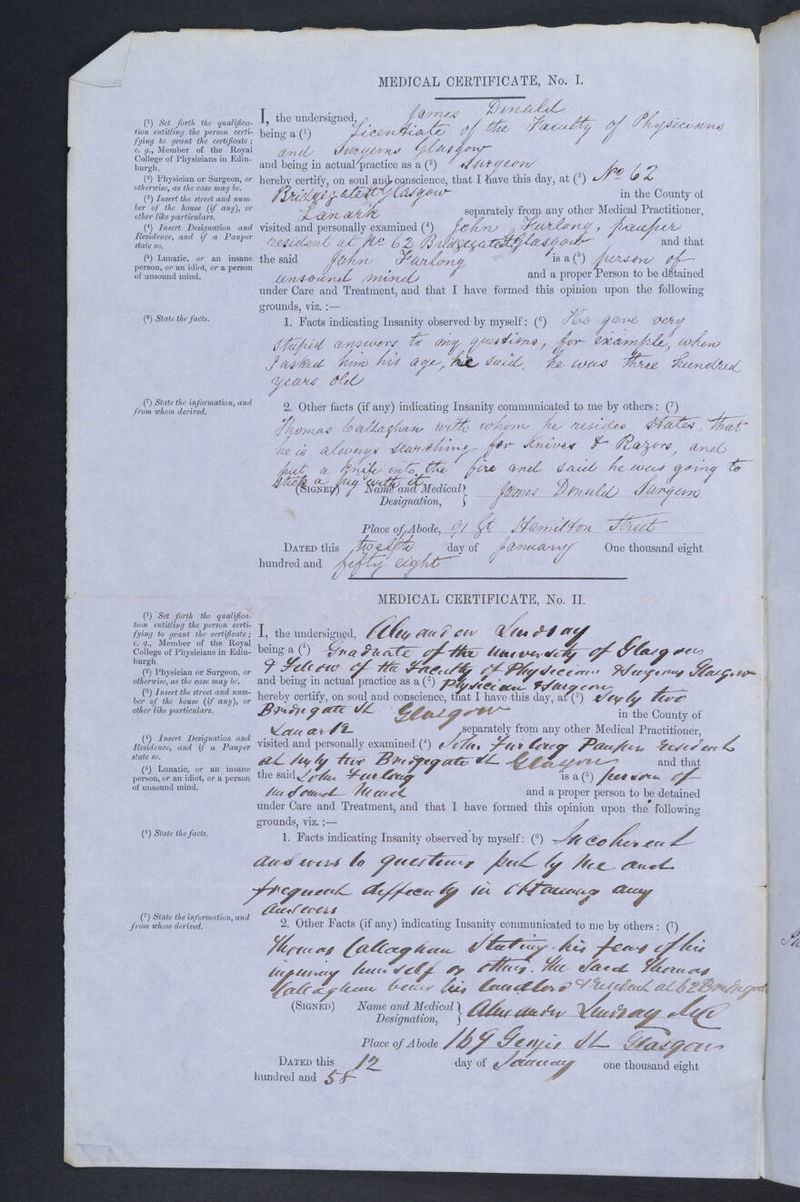 MEDICAL CERTIFICATE, No. I.
(1) Set forth the qualifica-
tion entitling the person certi-
fying to grant the certificate;
e. g., Member of the Royal
College of Physicians in Edin-
burgh.
(2) Physician or Surgeon, or
otherwise, as the case may be.
(3) Insert the street and num-
ber of the house (if any), or
other like particulars.
(4) Insert Designation and
Residence, and if a Pauper
state so.
(5) Lunatic, or an insane
person, or an idiot, or a person
of unsound mind.
(6) State the facts.
(7) State the information, and
from whom derived.
I, the undersigned, James Donald
being a (1) Licentiate of the Faculty of Physicians
and Surgeons Glasgow
and being in actual practice as a (2) Surgeon
hereby certify, on soul and conscience, that I have this day, at (3) No 62
Bridgegate St Glasgow in the County of
Lanark separately from any other Medical Practitioner,
visited and personally examined (4) John Furlong, pauper
resident at No 62 Bridgegate St Glasgow and that
the said John Furlong is a (5) person of
unsound mind and a proper Person to be detained
under Care and Treatment, and that I have formed this opinion upon the following
grounds, viz. :—
1. Facts indicating Insanity observed by myself: (6) He gave very
stupid answers to my questions, for example, when
I asked him his age, he said, he was three hundred
years old
2. Other facts (if any) indicating Insanity communicated to me by others: (7)
Thomas Callaghan with whom he resides states, that
he is always searching for Knives & Razors, and
put a knife into the fire and said he was going to
stick a pig with it
(SIGNED) Name and Medical Designation, James Donald Surgeon
Place of Abode, 91 Gt Hamilton Street
DATED this twelfth day of January One thousand eight
hundred and fifty eight
MEDICAL CERTIFICATE, No. II.
(1) Set forth the qualifica-
tion entitling the person certi-
fying to grant the certificate;
e. g., Member of the Royal
College of Physicians in Edin-
burgh.
(2) Physician or Surgeon, or
otherwise, as the case may be.
(3) Insert the street and num-
ber of the house (if any), or
other like particulars.
(4) Insert Designation and
Residence, and if a Pauper
state so.
(5) Lunatic, or an insane
person, or an idiot, or a person
of unsound mind.
(6) State the facts.
(7) State the information, and
from whom derived.
I, the undersigned, Alexander Lindsay
being a (1) Graduate of the University of Glasgow
& Fellow of the Faculty of Physicians & Surgeons Glasgow
and being in actual practice as a (2) Physician & Surgeon
hereby certify, on soul and conscience, that I have this day, at (3) Sixty two
Bridgegate St Glasgow in the County of
Lanark separately from any other Medical Practitioner,
visited and personally examined (4) John Furlong Pauper resident
at sixty two Bridgegate St Glasgow and that
the said John Furlong is a (5) person of
unsound Mind and a proper person to be detained
under Care and Treatment, and that I have formed this opinion upon the following
grounds, viz. :—
1. Facts indicating Insanity observed by myself: (6) Incoherent
answers to questions put by me and
frequent difficulty in obtaining any
answers
2. Other Facts (if any) indicating Insanity communicated to me by others : (7)
Thomas Callaghan stating his fears of his
injuring himself or others. The said Thomas
Callaghan being his landlord & resident at 62 Bridgegate
(SIGNED) Name and Medical Designation, Alexander Lindsay
Place of Abode 169 George St Glasgow
DATED this 12 day of January one thousand eight
hundred and 58